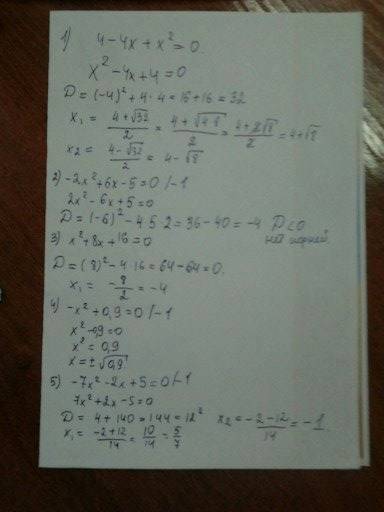 1) 4-4x+x²=0
x²-4x+4=0
D=(-4)²+4·4=16+16=32
x₁=(4+√32)/2=(4+√4·8)/2=(4+2√8)/2=4+√8
x₂=(4-√32)/2=4-√8
2) -2x²+6x-5=0 /-1
2x²-6x+5=0
D=(-6)²-4·5·2=36-40=-4 D<0
нет корней.
3) x²+8x+16=0
D=(8)²-4·16=64-64=0.
x₁=-8/2=-4
4) -x²+0,9=0 /-1
x²-0,9=0
x²=0,9
x=±√0,9
5) -7x²-2x+5=0 /-1
7x²+2x-5=0
D=4+140=144=12² x₂=(-2-12)/14=-1.
x₁=(-2+12)/14=10/14=5/7